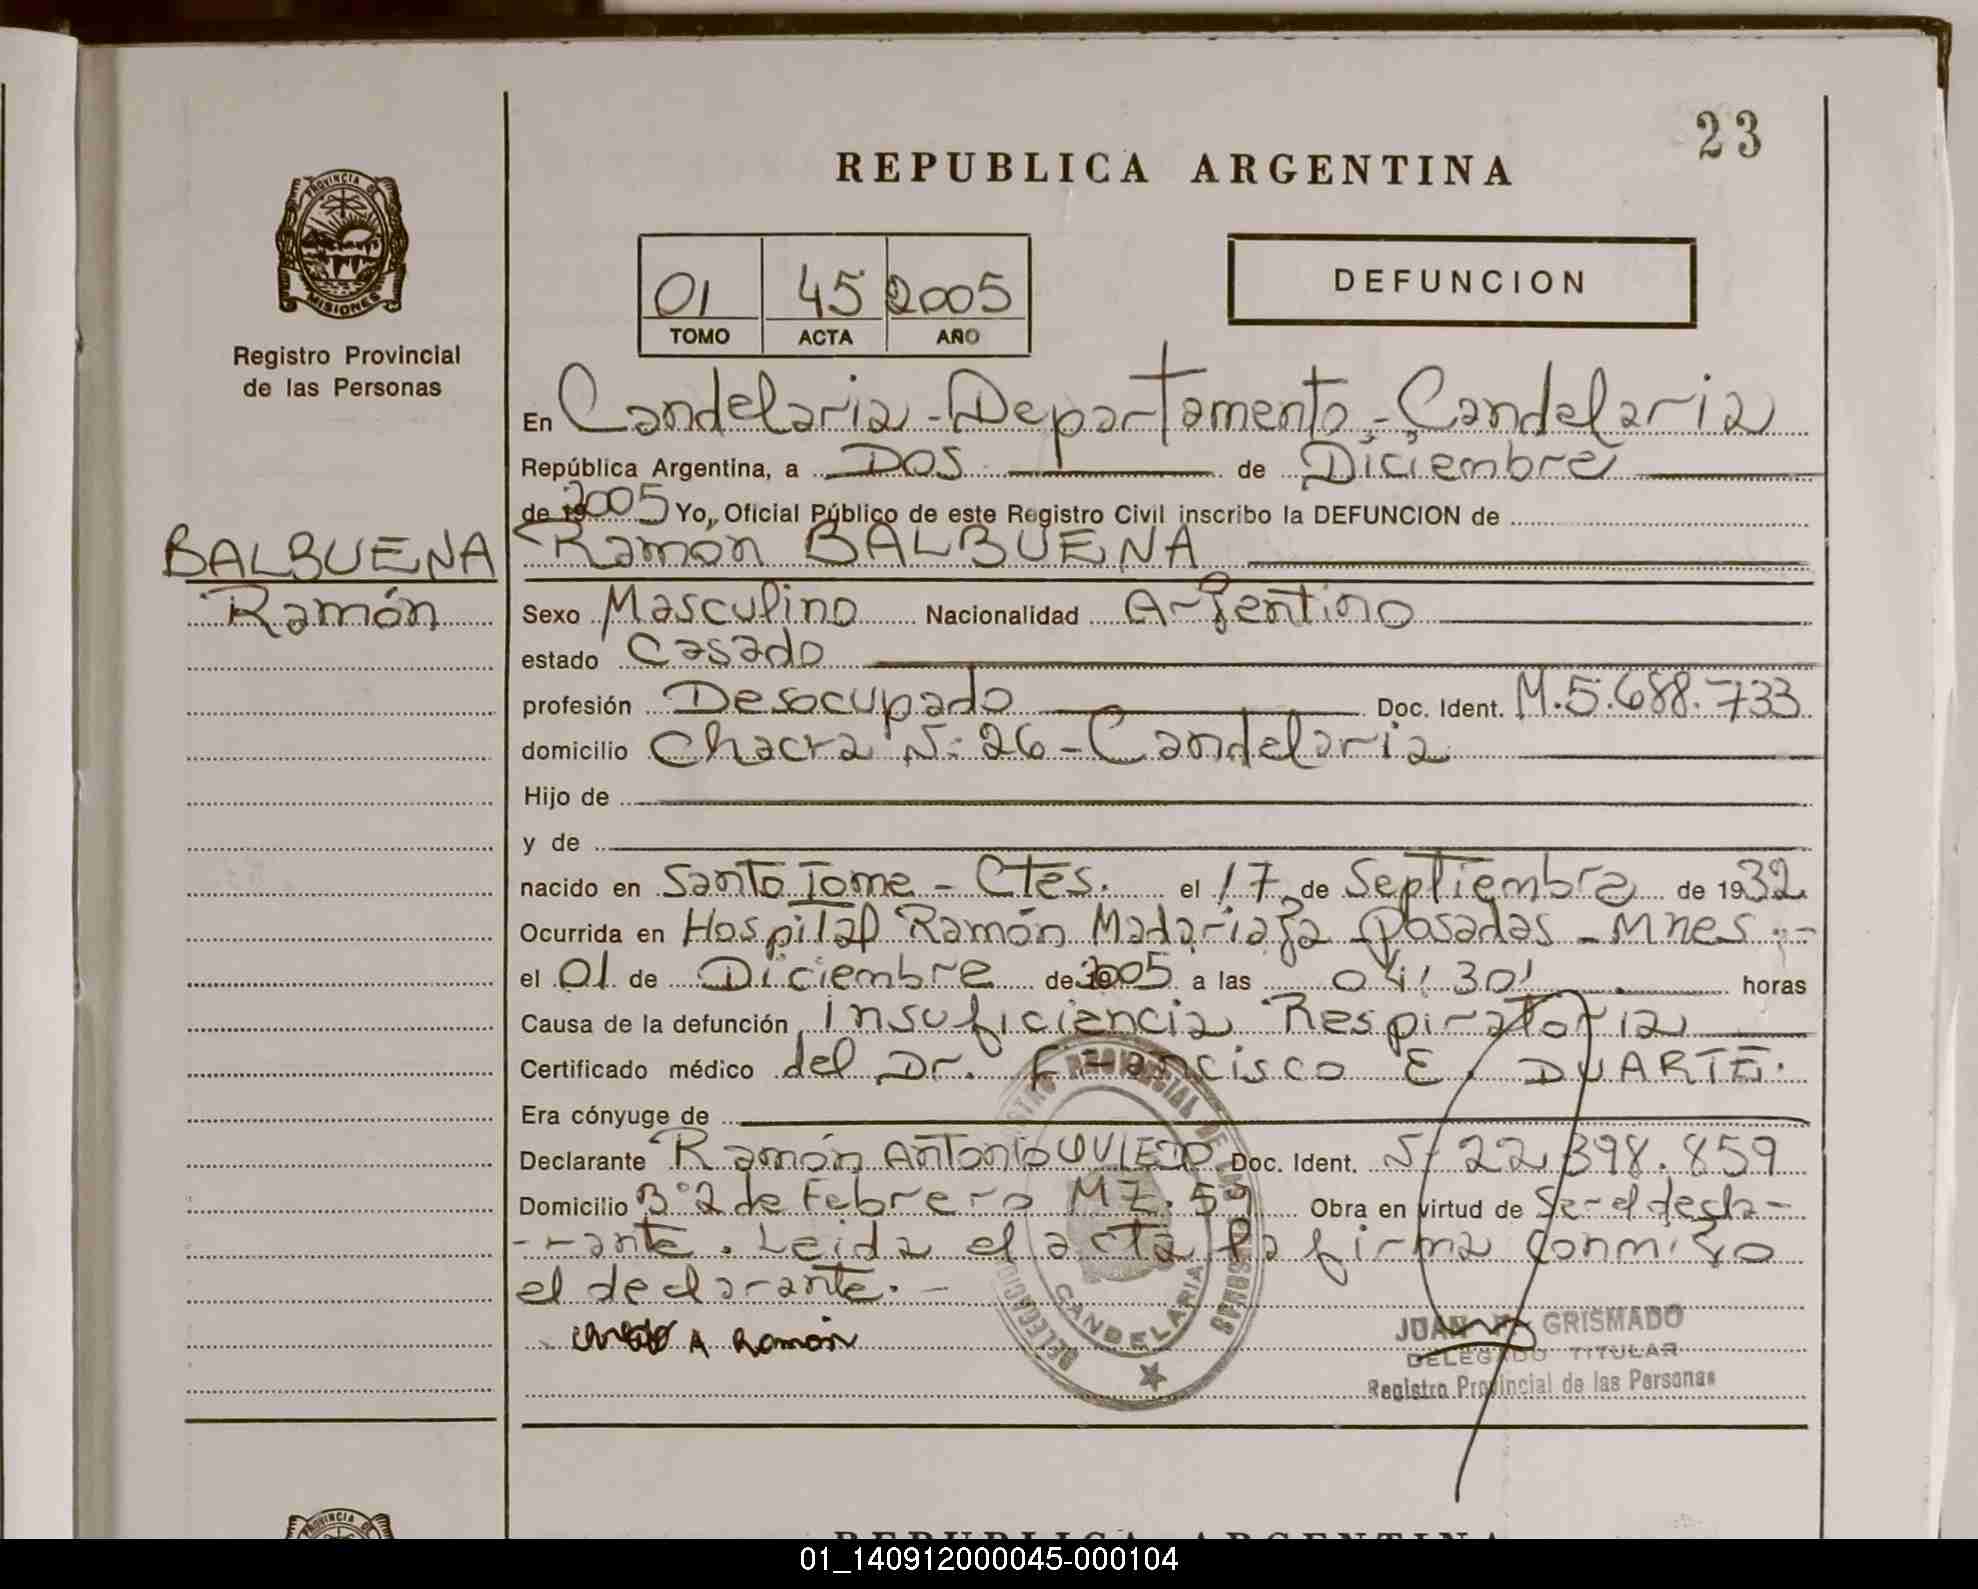 23
REPUBLICA ARGENTINA
PROVINCIA DE
MISIONES
Registro Provincial
de las Personas
01 45 2005
TOMO ACTA AÑO
DEFUNCION
En Candelaria - Departamento - Candelaria
República Argentina, a DOS de Diciembre
de 2005 Yo, Oficial Público de este Registro Civil inscribo la DEFUNCION de
BALBUENA
Ramón
Ramón BALBUENA
Sexo Masculino Nacionalidad Argentino
estado Casado
profesión Desocupado Doc. Ident. M.5.688.733
domicilio Chacra Nº 26 - Candelaria
Hijo de
y de
nacido en Santo Tome - Ctes. el 17 de Septiembre de 1932
Ocurrida en Hospital Ramón Madariaga Posadas - Mnes.-
el 01 de Diciembre de 2005 a las 04'30' horas
Causa de la defunción Insuficiencia Respiratoria
Certificado médico del Dr. Francisco E. DUARTE.
Era cónyuge de
Declarante Ramón Antonio OVIEDO Doc. Ident. Nº 22.398.859
Domicilio Bº 2 de Febrero MZ. 59 Obra en virtud de Ser el decla-
-rante. Leida el acta la firma conmigo
el declarante.-
A Ramón
CANDELARIA
JUAN GRISMADO
DELEGADO TITULAR
Registro Provincial de las Personas
REPUBLICA ARGENTINA
01_140912000045-000104